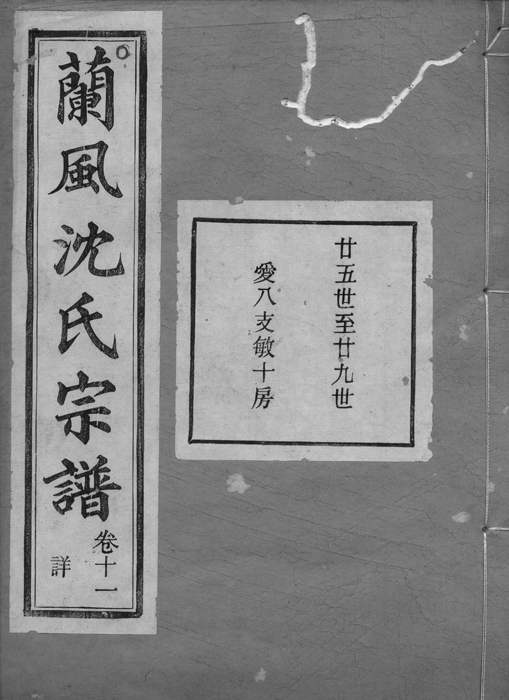 蘭風沈氏宗譜
卷十一
詳
廿五世至廿九世
愛八支敏十房